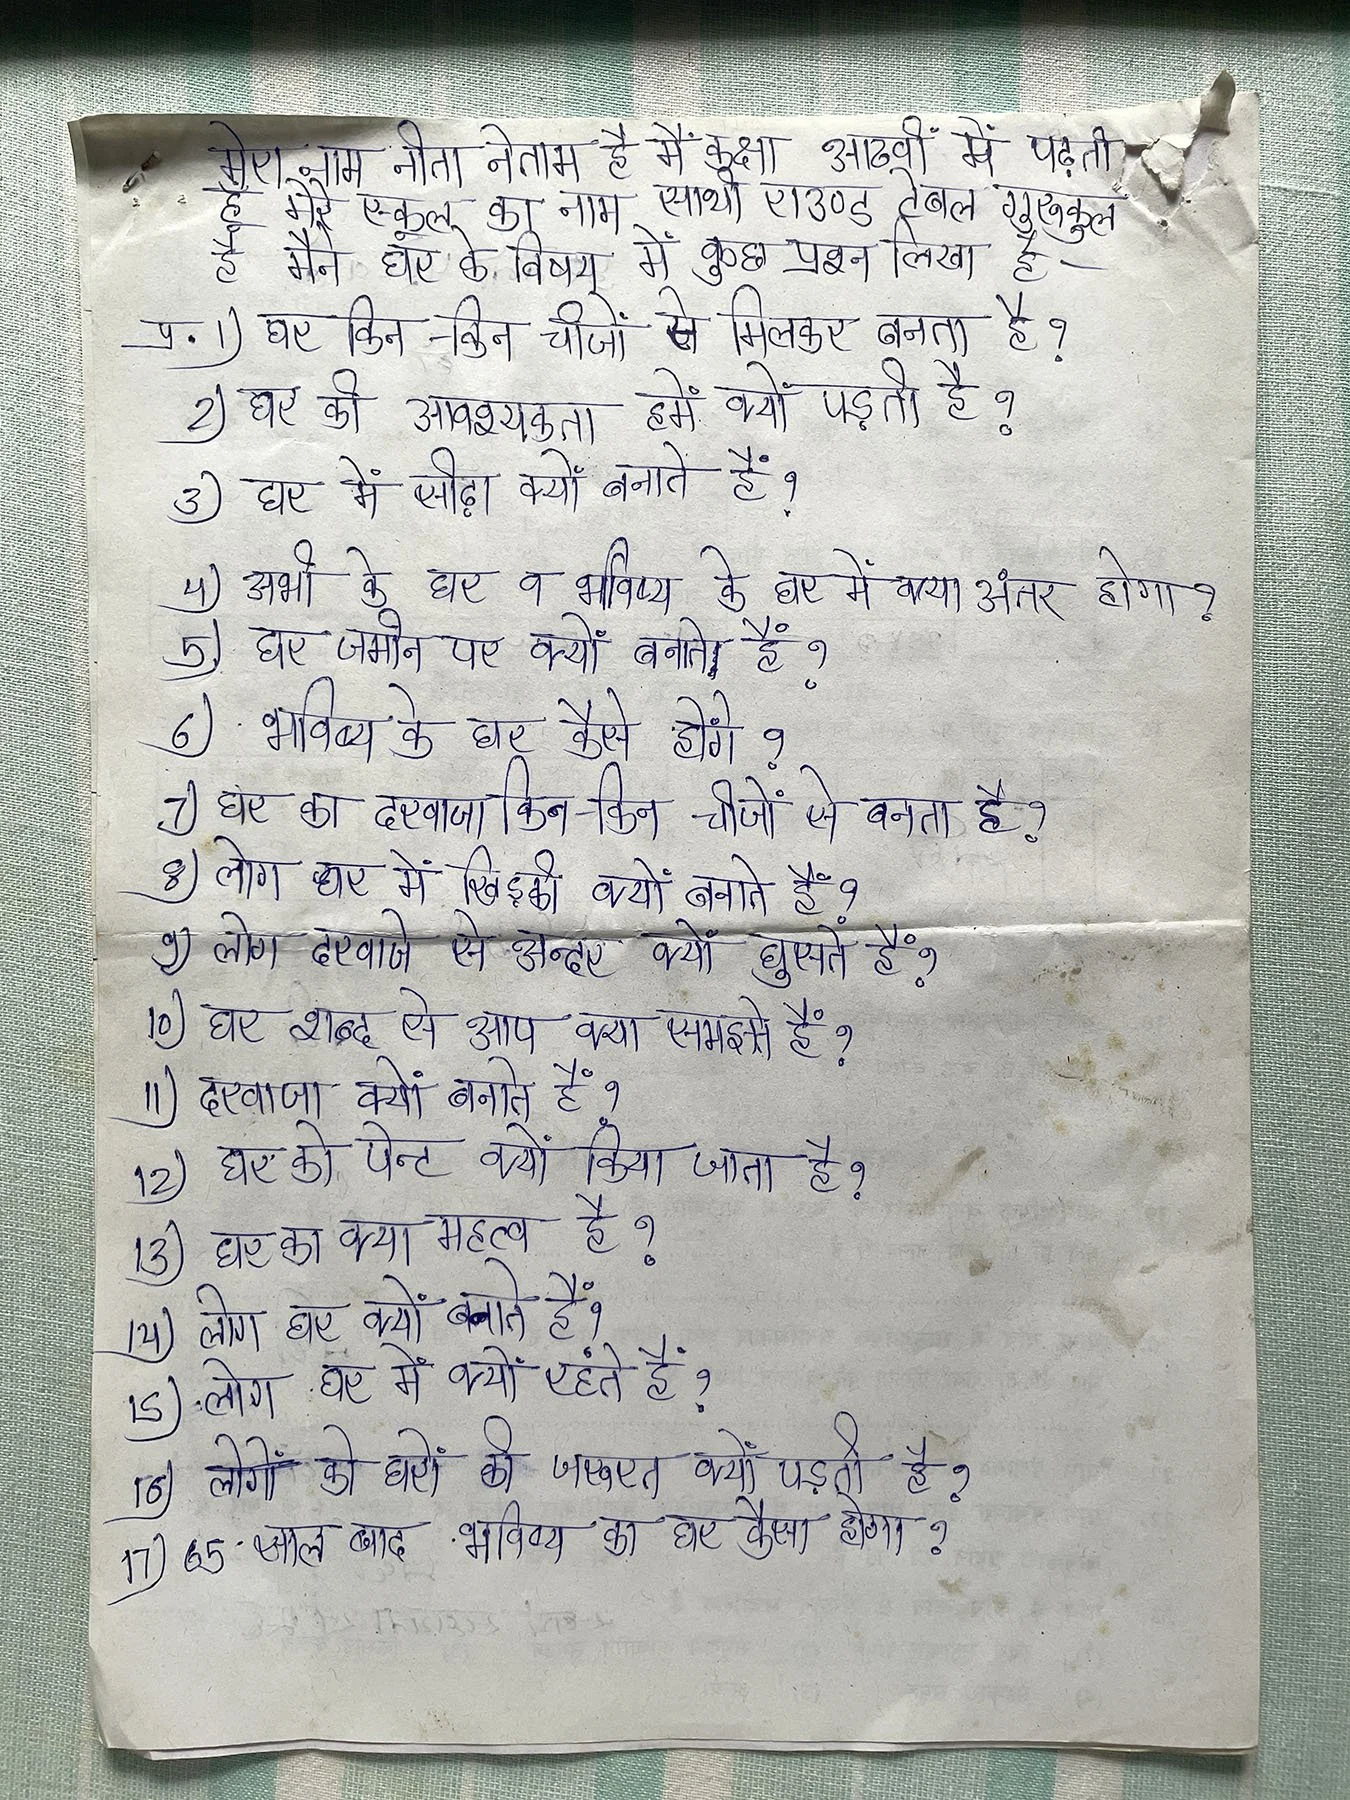 मेरा नाम नीता नेताम है मैं कक्षा आठवीं में पढ़ती
हूँ मेरे स्कूल का नाम साथी राउण्ड टेबल गुरूकुल
है मैंने घर के विषय में कुछ प्रश्न लिखा है -
प्र. 1) घर किन-किन चीजों से मिलकर बनता है?
2) घर की आवश्यकता हमें क्यों पड़ती है?
3) घर में सीढ़ी क्यों बनाते हैं?
4) अभी के घर व भविष्य के घर में क्या अंतर होगा?
5) घर जमीन पर क्यों बनाते हैं?
6) भविष्य के घर कैसे होंगे?
7) घर का दरवाजा किन-किन चीजों से बनता है?
8) लोग घर में खिड़की क्यों बनाते हैं?
9) लोग दरवाजे से अन्दर क्यों घुसते हैं?
10) घर शब्द से आप क्या समझते हैं?
11) दरवाजा क्यों बनाते हैं?
12) घर को पेन्ट क्यों किया जाता है?
13) घर का क्या महत्व है?
14) लोग घर क्यों बनाते हैं?
15) लोग घर में क्यों रहंते हैं?
16) लोगों को घरों की जरूरत क्यों पड़ती है?
17) 65 साल बाद भविष्य का घर कैसा होगा?